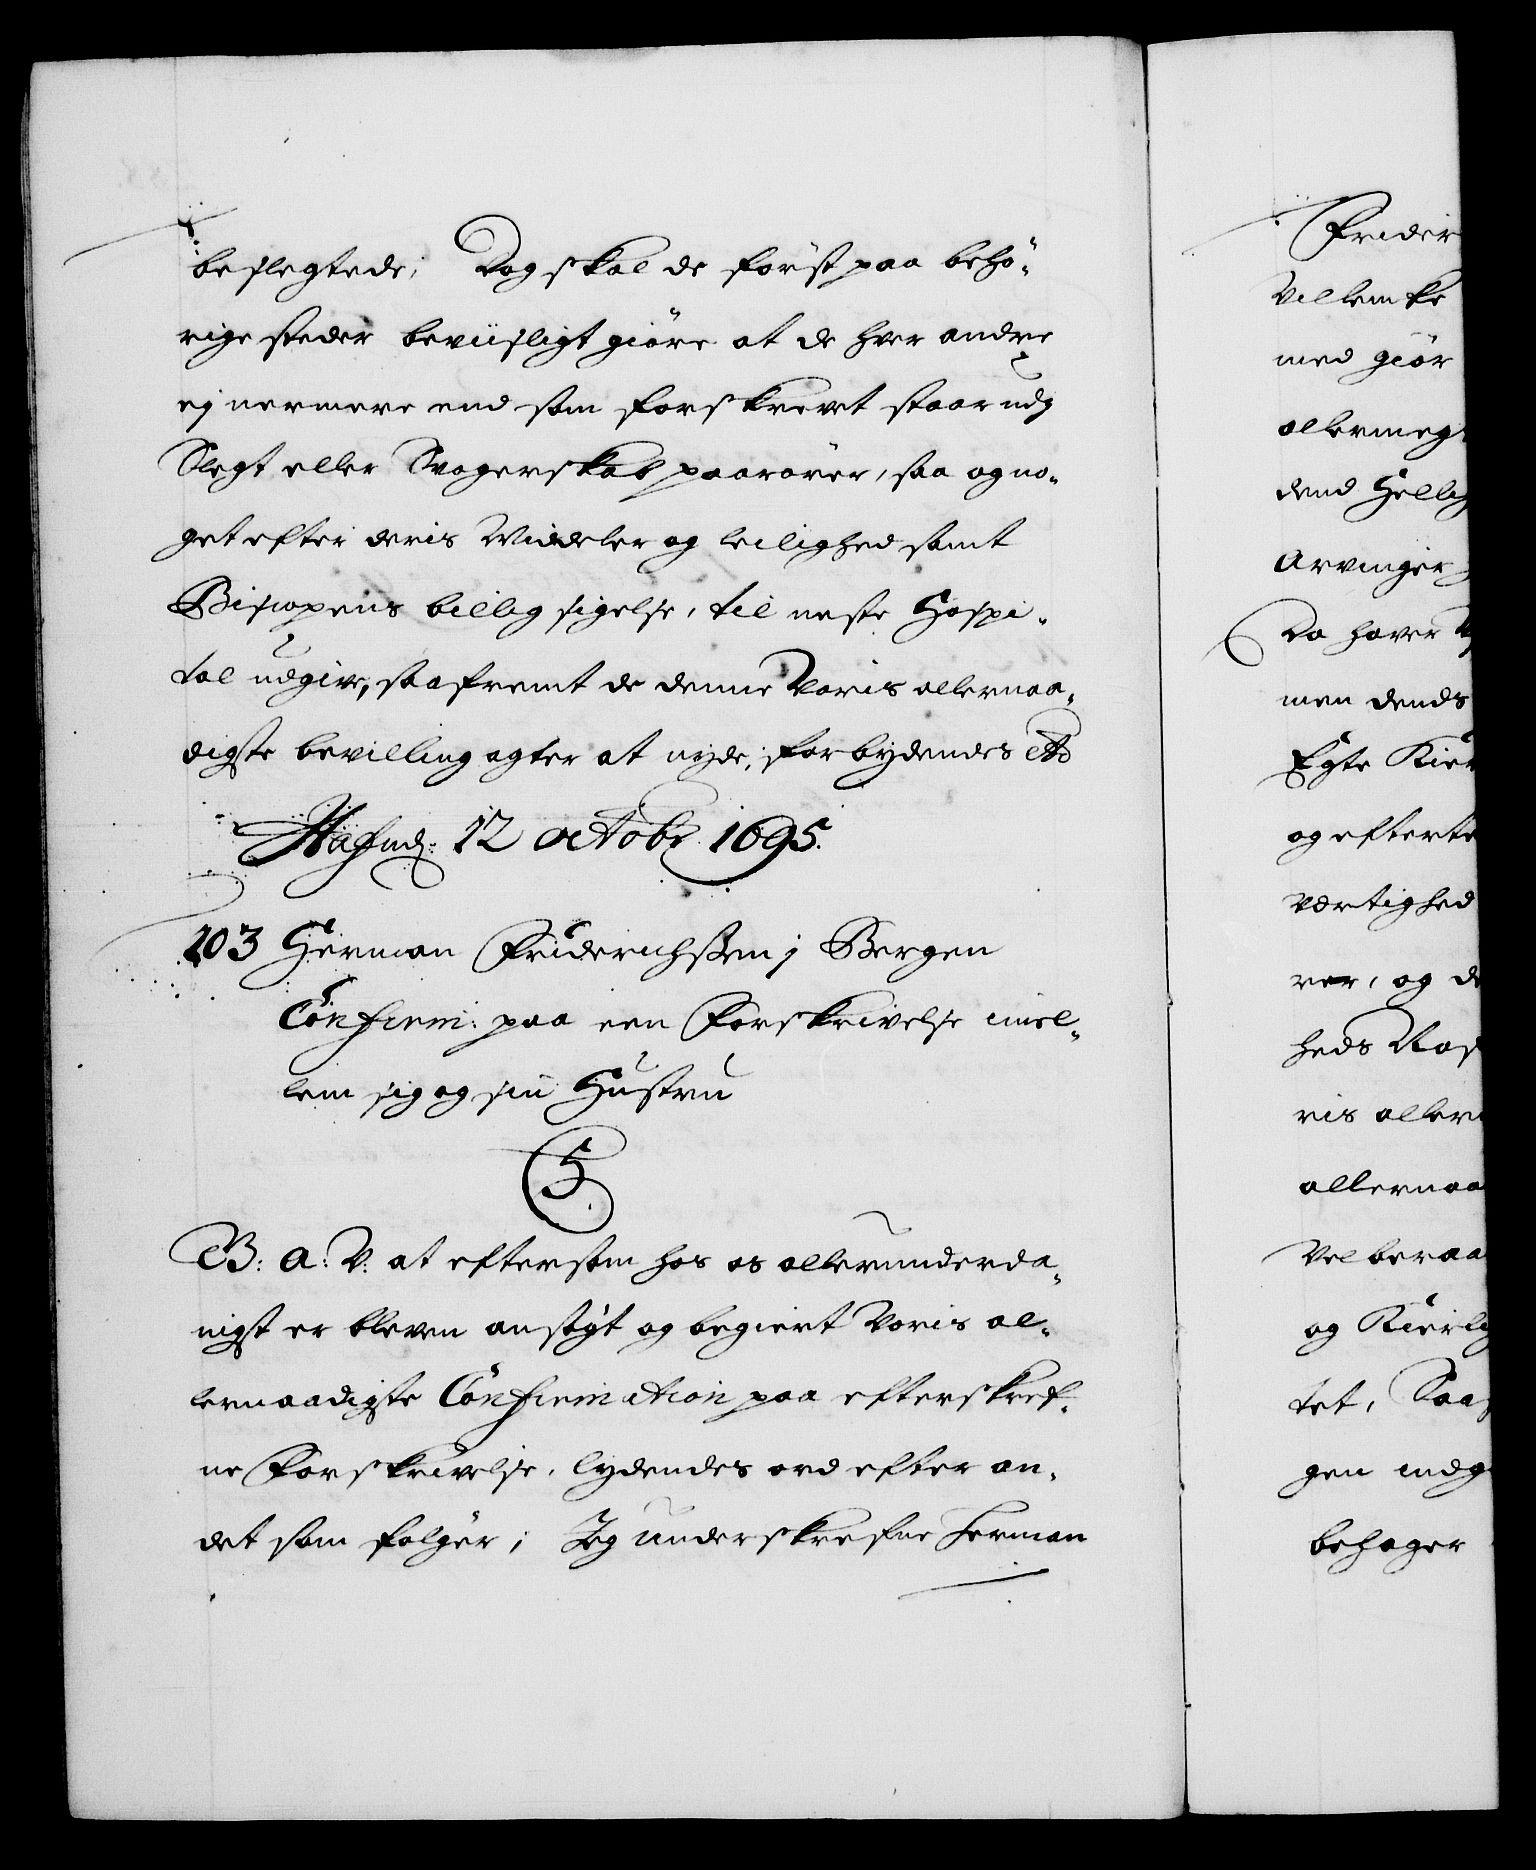 beslegtede; Dog skal de först paa behö-
rige steder beviisligt giöre at de hver andre
ej nermere end som forskrevet staar udj
Slegt eller Svogerskab paarörer, saa og no-
get efter deris Middeler og leilighed samt
Bispens billig sigelse, til neste Hospi-
tal udgive, saafremt de denne Voris allernaa-
digste bevilling agter at nyde; forbydendes Etc
Hafnd: 12 octobr 1695.
103 Herman Friderichssen j Bergen
Confirm: paa een Forskrivelse imel-
lem sig og sin Hustru
5
G: A: V: at eftersom hos os allerunderda-
nigst er bleven ansögt og begiert Voris al-
lernaadigste Confirmation paa efterskref-
ne Forskrivelse, lydendes ord efter an-
det som fölger; Jeg underskrefne Herman
Frider
Villemke
med giör
allermeg
dend Hellig
Arvinger
Da haver
men dends
Egte Kier
og efterte
vertighed
rer, og de
heds
ris aller
allernaa
Velberaa
og Kierlig
tet, Saa
gen indg
behager